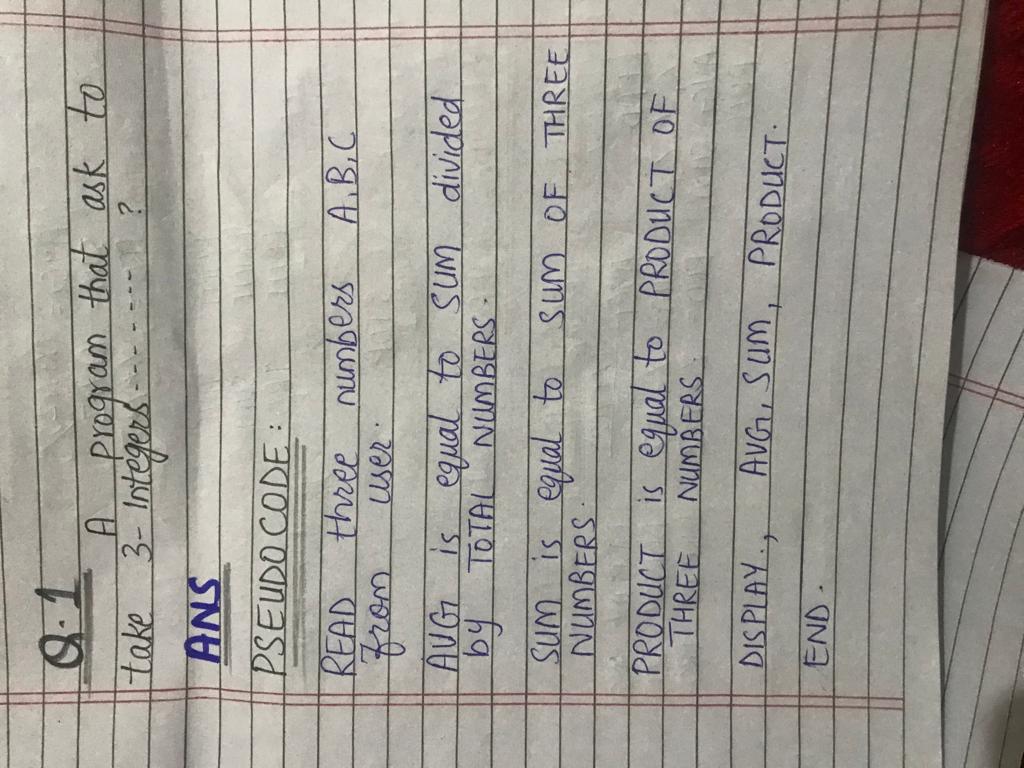 Q.1
A program that ask to
take 3- Integers-------- ?
ANS
PSEUDOCODE:
READ three numbers A,B,C
from user.
AVG is equal to SUM divided
by TOTAL NUMBERS.
SUM is equal to SUM OF THREE
NUMBERS.
PRODUCT is equal to PRODUCT OF
THREE NUMBERS.
DISPLAY., AVG, SUM, PRODUCT.
END.